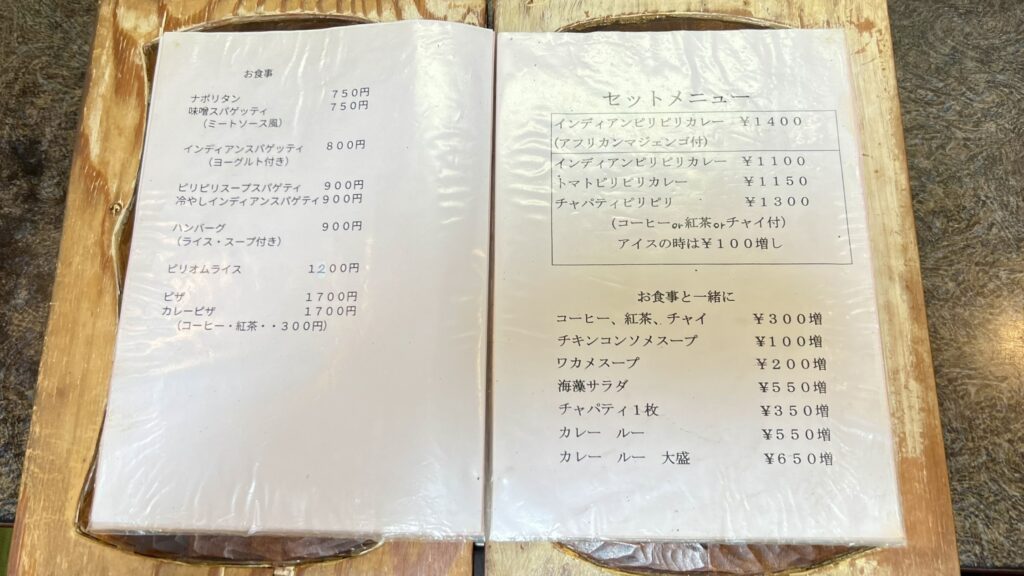 お食事
ナポリタン 750円
味噌スパゲッティ 750円
(ミートソース風)
インディアンスパゲッティ 800円
(ヨーグルト付き)
ピリピリスープスパゲティ 900円
冷やしインディアンスパゲティ 900円
ハンバーグ 900円
(ライス・スープ付き)
ピリオムライス 1200円
ピザ 1700円
カレーピザ 1700円
(コーヒー・紅茶・・300円)
セットメニュー
インディアンピリピリカレー ¥1400
(アフリカンマジェンゴ付)
インディアンピリピリカレー ¥1100
トマトピリピリカレー ¥1150
チャパティピリピリ ¥1300
(コーヒーor紅茶orチャイ付)
アイスの時は¥100増し
お食事と一緒に
コーヒー、紅茶、チャイ ¥300増
チキンコンソメスープ ¥100増
ワカメスープ ¥200増
海藻サラダ ¥550増
チャパティ1枚 ¥350増
カレー ルー ¥550増
カレー ルー 大盛 ¥650増